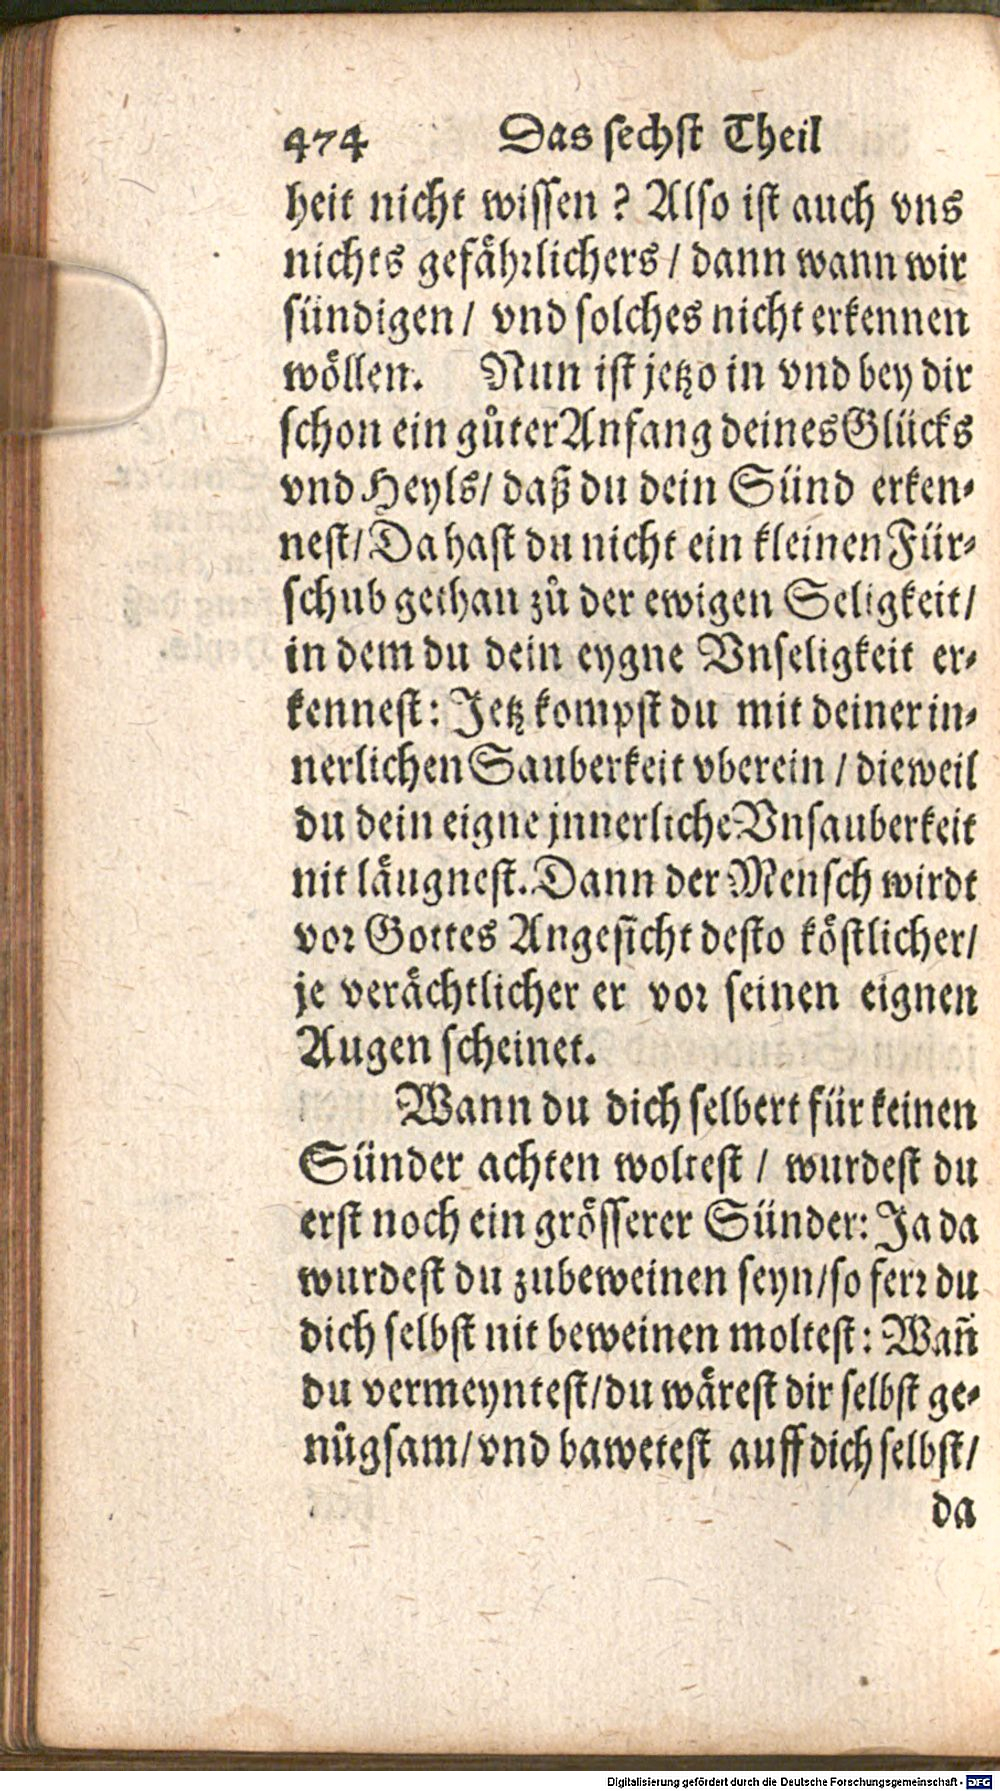 474 Das sechst Theil
heit nicht wissen? Also ist auch vns
nichts gefåhrlichers / dann wann wir
sündigen / vnd solches nicht erkennen
wöllen. Nun ist jetzo in vnd bey dir
schon ein gůter Anfang deines Glücks
vnd Heyls / daß du dein Sünd erken-
nest / Da hast du nicht ein kleinen Für-
schub gethan zů der ewigen Seligkeit /
in dem du dein eygne Vnseligkeit er-
kennest: Jetz kompst du mit deiner in-
nerlichen Sauberkeit vberein / dieweil
du dein eigne jnnerliche Vnsauberkeit
nit läugnest. Dann der Mensch wirdt
vor Gottes Angesicht desto köstlicher /
je verächtlicher er vor seinen eignen
Augen scheinet.
Wann du dich selbert für keinen
Sünder achten woltest / wurdest du
erst noch ein grösserer Sünder: Ja da
wurdest du zubeweinen seyn / so ferr du
dich selbst nit beweinen moltest: Wañ
du vermeyntest / du wärest dir selbst ge-
nůgsam / vnd bawetest auff dich selbst /
da
Digitalisierung gefördert durch die Deutsche Forschungsgemeinschaft - DFG